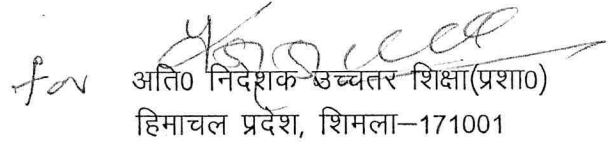 for अति० निदेशक उच्चतर शिक्षा(प्रशा०)
हिमाचल प्रदेश, शिमला–171001